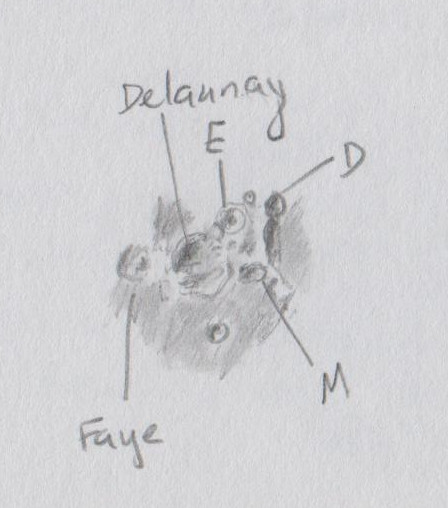 Delaunay
E
D
M
Faye